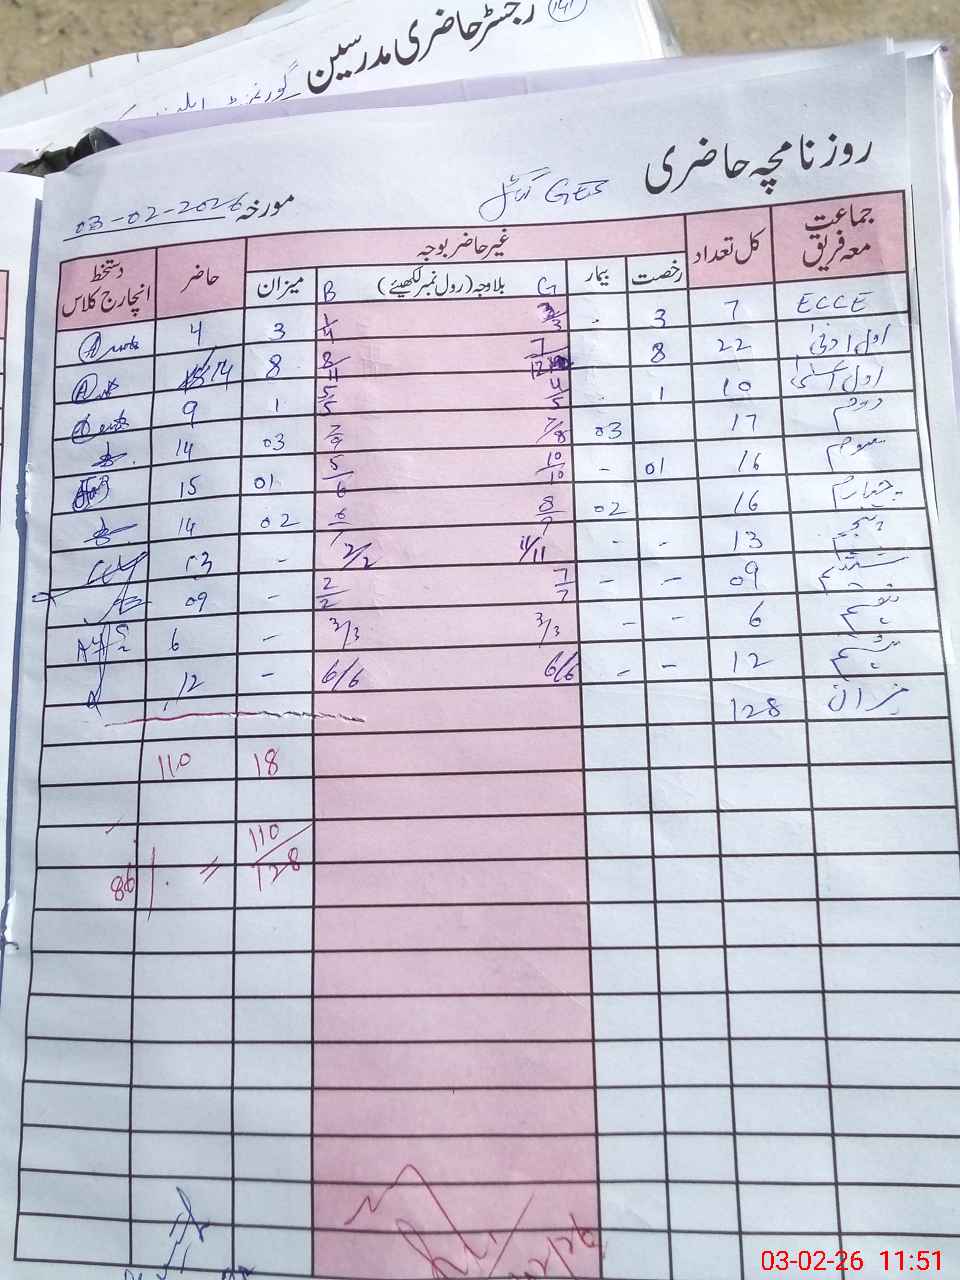 141
رجسٹر حاضری مدرسین
گورنمنٹ
روزنامچہ حاضری
GES
مورخہ 03-02-2026
جماعت معہ فریق
کل تعداد
غیر حاضر بوجہ
رخصت
بیمار
بلاوجہ (رول نمبر لکھیئے)
G
B
میزان
حاضر
دستخط انچارج کلاس
ECCE 7 3 . 3/3 1/4 3 4
اول ادنیٰ 22 8 8/11 8 14
اول اعلیٰ 10 1 . 4/5 5/5 1 9
دوم 17 03 7/8 7/9 03 14
سوم 16 01 - 10/10 5/6 01 15
چہارم 16 02 8/9 6/7 02 14
پنجم 13 - - 11/11 2/2 - 13
ششم 09 - - 7/7 2/2 - 09
ہفتم 6 - - 3/3 3/3 - 6
ہشتم 12 - - 6/6 6/6 - 12
میزان 128
18 110
110/128
= 86
03-02-26 11:51